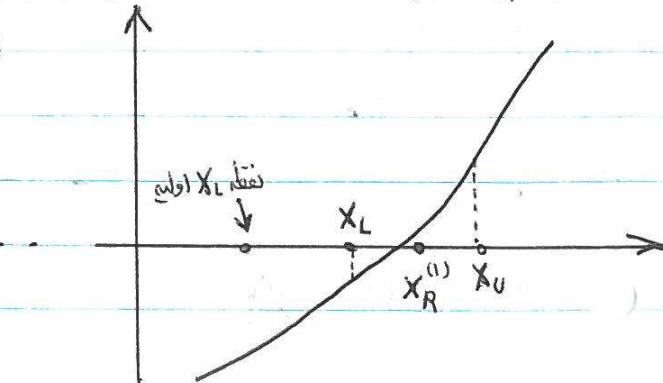 نقطه X_L اولیه
X_L
X_R^(1) X_U